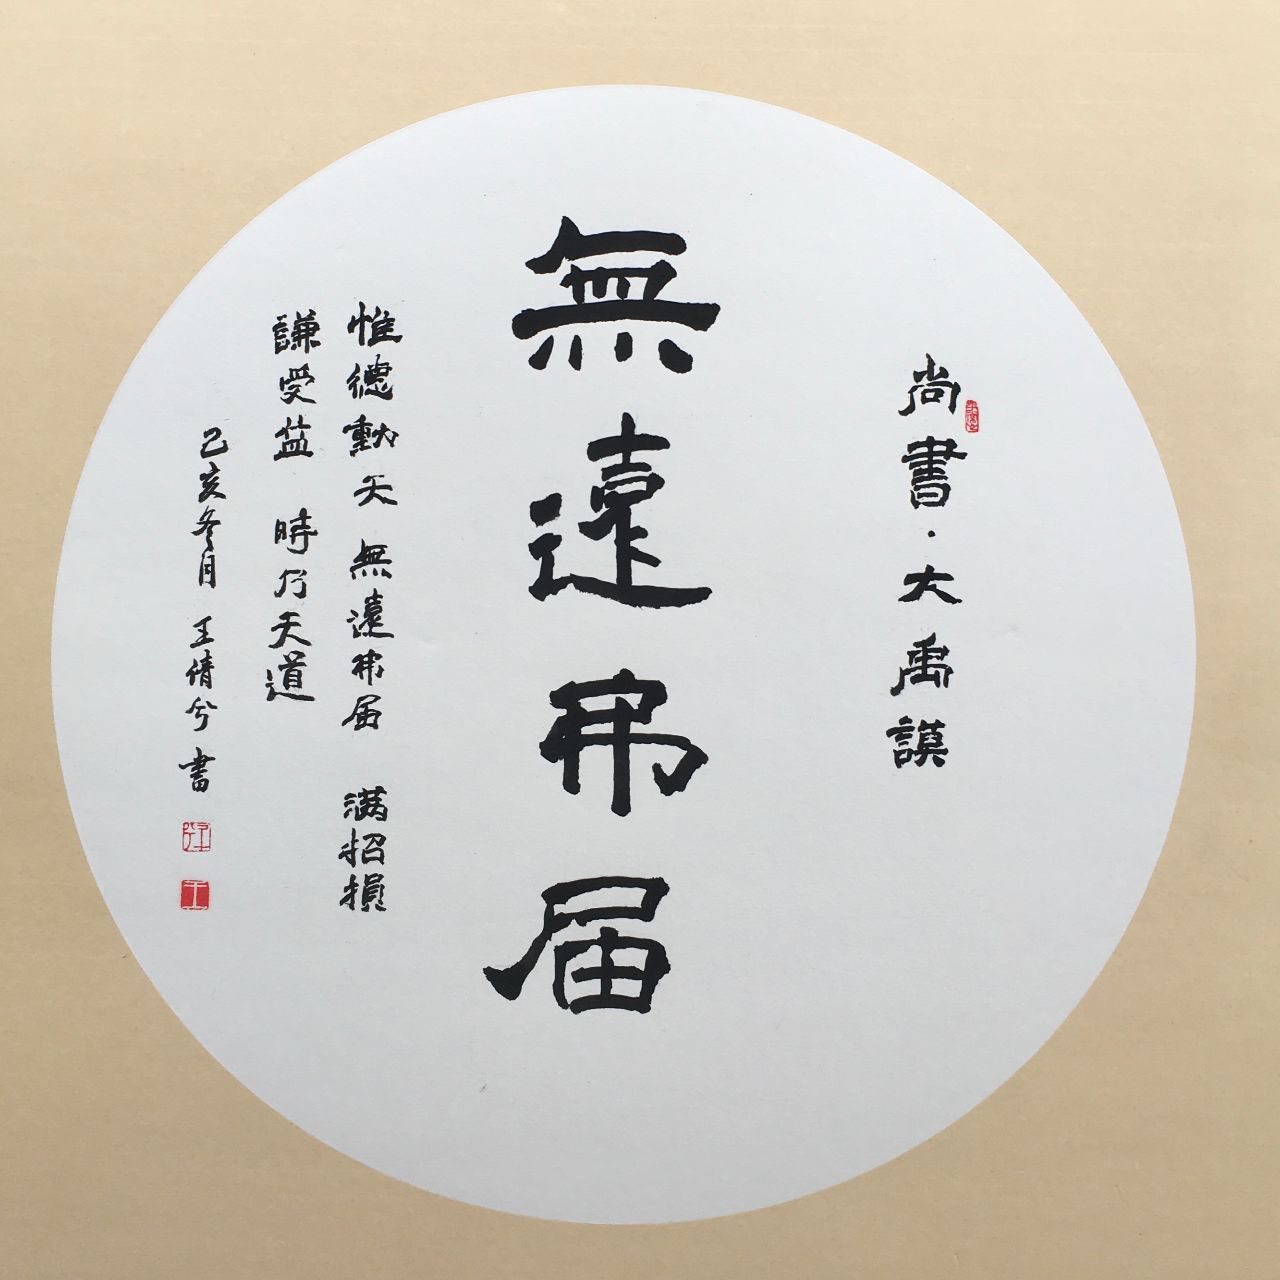 尚書·大禹謨
無遠弗届
惟德動天 無遠弗届 满招損
謙受益 時乃天道
己亥冬月 王倩兮 書
王